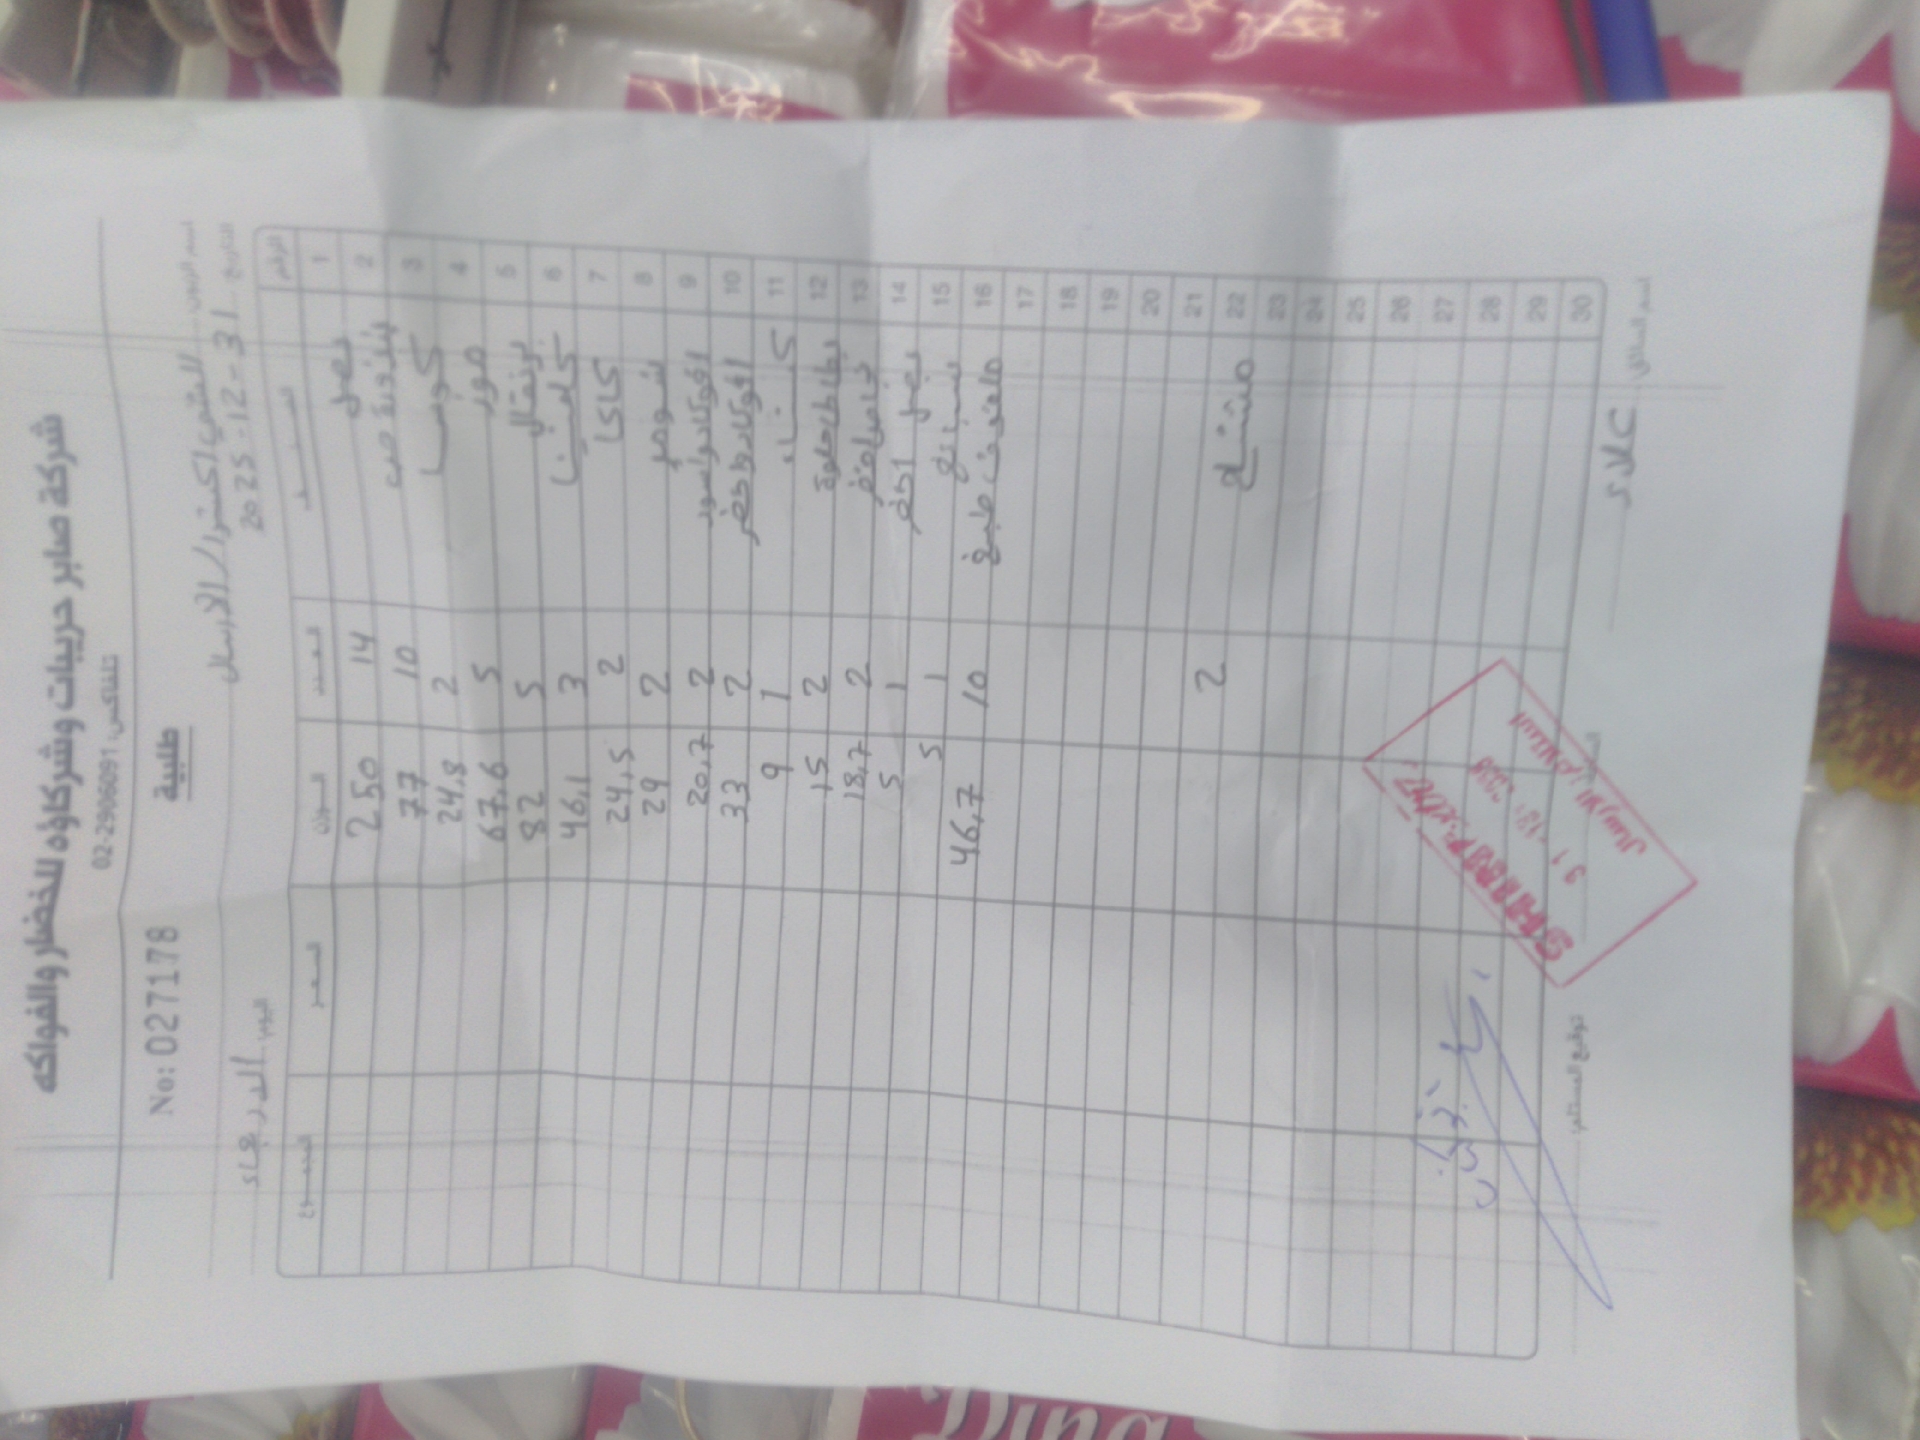 شركة صابر حربيات وشركاؤه للخضار والفواكه
تلفاكس: 02-2906091
طلبية
No: 027178
اسم الزبون: الشني اكسترا / الارسال
التاريخ: 2025-12-31 اليوم: الاربعاء
الرقم الصنف العدد الوزن السعر المجموع
1 بصل 14 250
2 بندورة حب 10 77
3 كوسا 2 24,8
4 موز 5 67,6
5 برتقال 5 82
6 كلمنتينا 3 46,1
7 كاكا 2 24,5
8 شومر 2 29
9 افوكادو اسود 2 20,7
10 افوكادو اخضر 2 33
11 1 9
12 بطاطا حلوة 2 15
13 2 18,7
14 بصل اخضر 1 5
15 سبانخ 1 5
16 ملفوف طبيخ 10 46,7
17
18
19
20
21
22 مشتاح 2
23
24
25
26
27
28
29
30
اسم السائق: علاء
توقيع المستلم
SHINI EXTRA
31 -12- 2025
الارسال
استلام